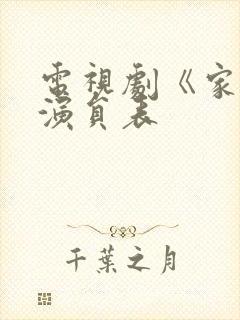 電視劇《家
演員表
千葉之月